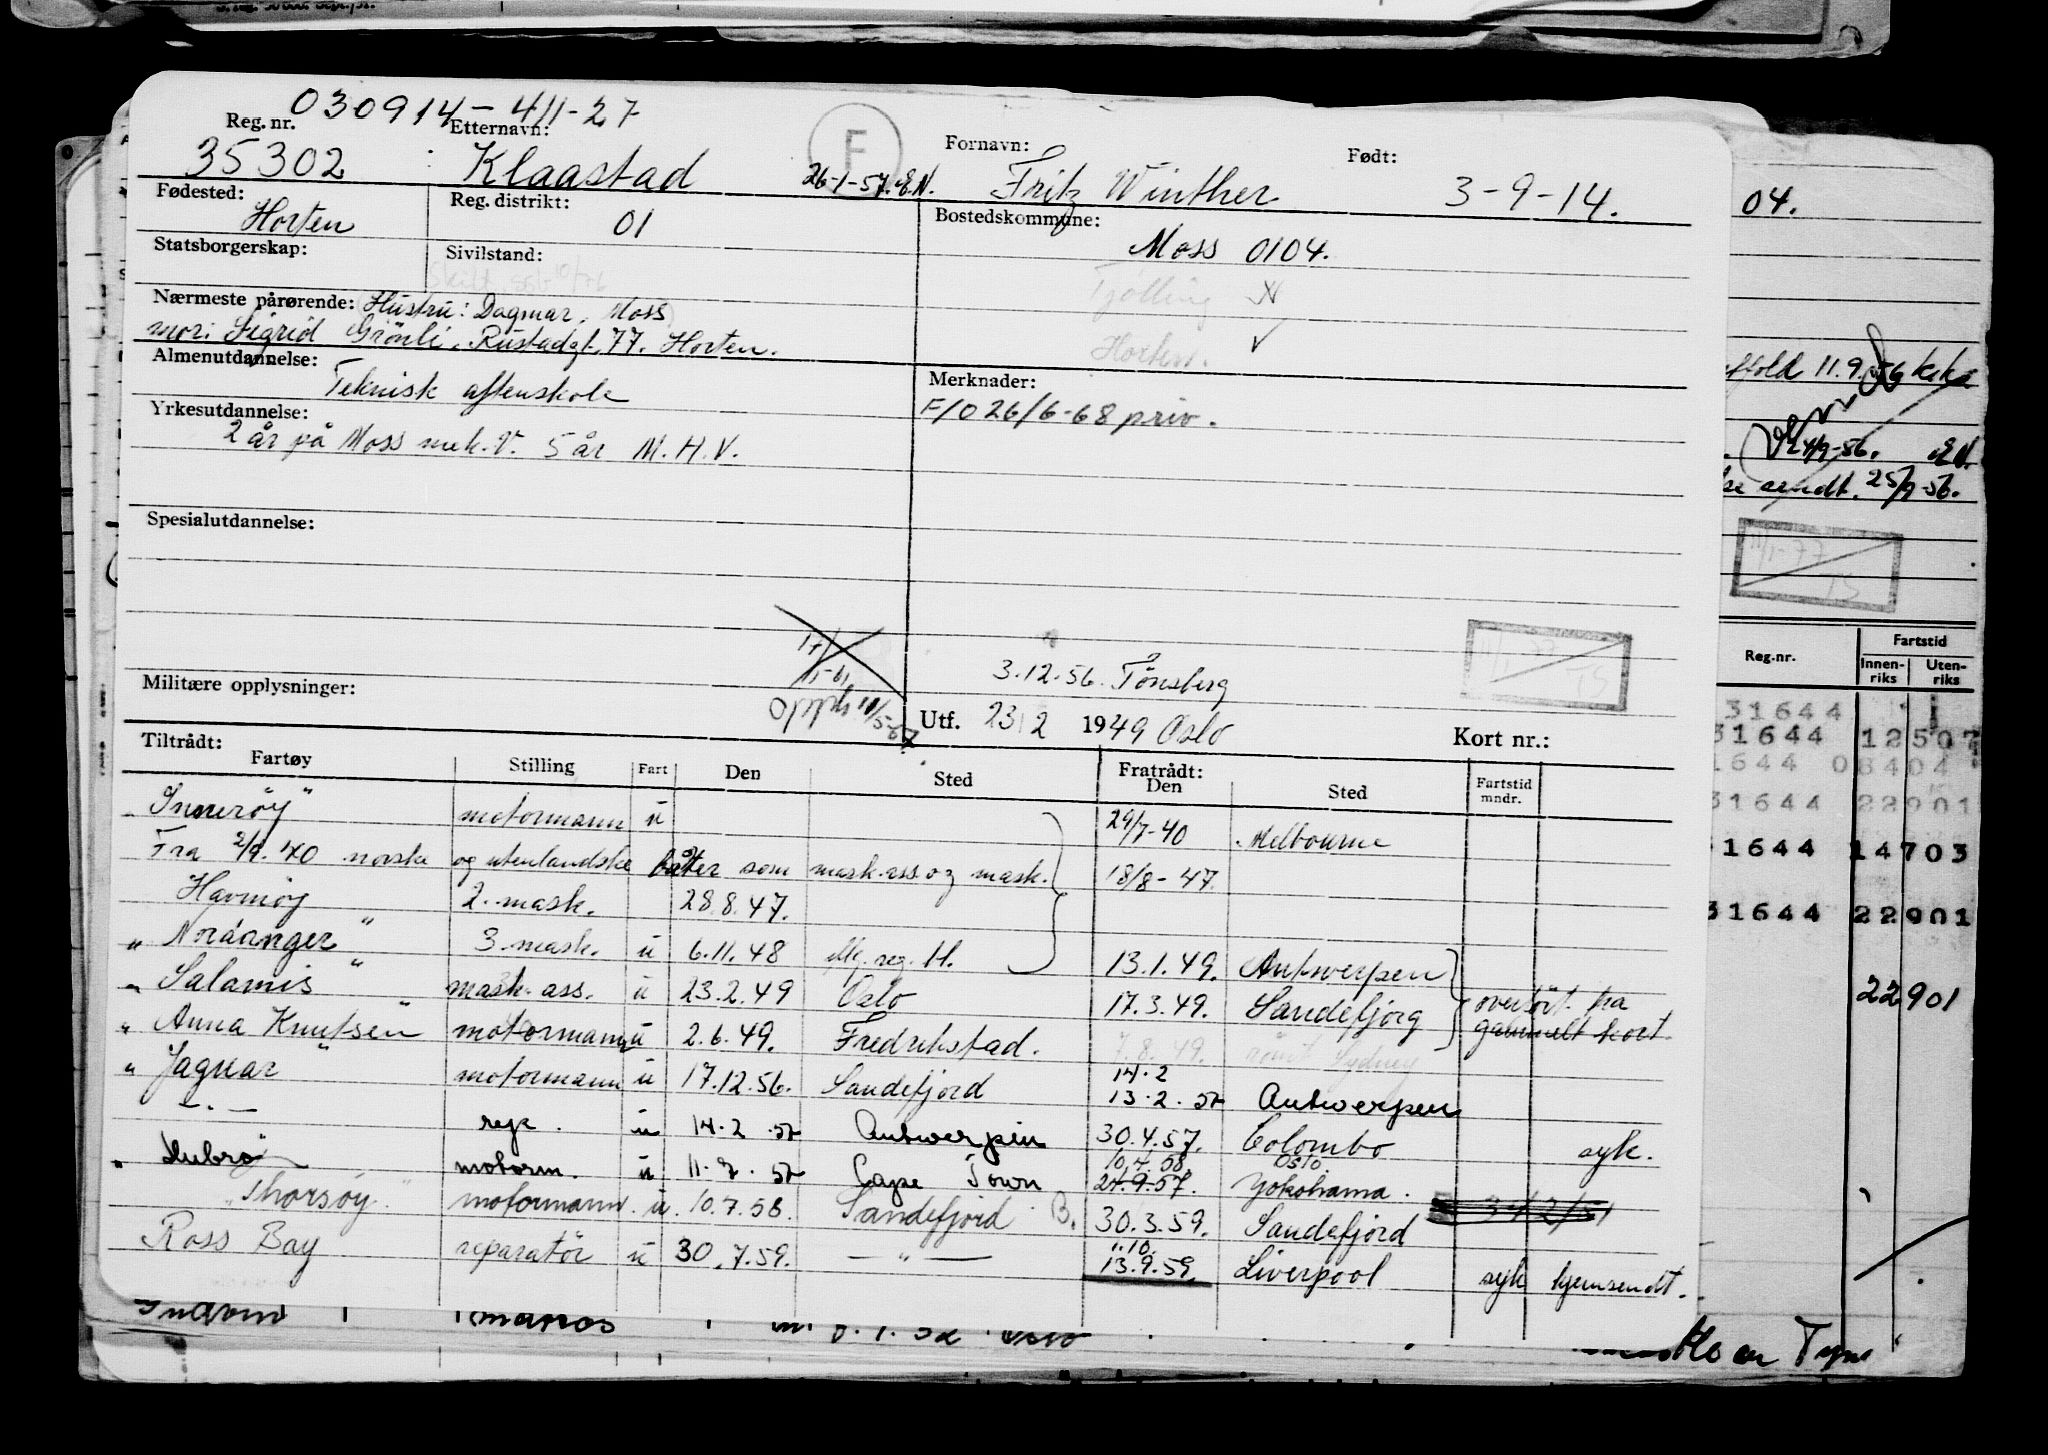 030914-411-27
Reg.nr. Etternavn: F Fornavn: Født:
35302 Klaastad 26-1-57. E.N. Fritz Winther 3-9-14.
Fødested: Reg. distrikt: Bostedskommune:
Horten 01 Moss 0104.
Statsborgerskap: Sivilstand:
Tjølling
Nærmeste pårørende: Hustru: Dagmar, Moss
mor: Sigrid Grönli, Rustadgt. 77. Horten.
Horten.
Almenutdannelse: Merknader:
Teknisk aftenskole F/O 26/6-68 priv.
Yrkesutdannelse:
2 år på Moss mek. V. 5 år M.H.V.
Spesialutdannelse:
3.12.56. Tönsberg
Militære opplysninger:
Utf. 23/2 1949 Oslo Kort nr.:
Tiltrådt: Fratrådt:
Fartøy Stilling Fart Den Sted Den Sted Fartstid mndr.
"Inneröy" motormann u 29/7-40 Melbourne
Fra 2/9.40 norske og utenlandske båter som mask.ass. og mask. 18/8-47.
Havmöy 2. mask. 28.8.47.
"Nordanger" 3. mask. u 6.11.48 reg. H. 13.1.49. Antwerpen
"Salamis" mask. ass. u 23.2.49 Oslo 17.3.49. Sandefjorg overfört fra
gammelt kort
"Anna Knutsen" motormann u 2.6.49. Fredrikstad. 7.8.49. römt Sydney
14.2
"Jaguar" motormann u 17.12.56. Sandefjord 13.2.57 Antwerpen
-"- rep. u 14.2.57 Antwerpen 30.4.57. Colombo syk.
10.4.58. Oslo.
"Hubro" motorm. u 11.7.57 Cape Town 24.9.57. Yokohama.
"Thorsöy" motormann. u. 10.7.58. Sandefjord B. 30.3.59. Sandefjord
1.10.
Ross Bay reparatör u 30.7.59. -"- 13.9.59. Liverpool syk hjemsendt.
04.
11.9.56
24/9-56. E.N.
sendt. 25/9-56.
11/1-77
TS
Reg.nr. Fartstid
Innenriks Utenriks
31644
31644 12507
1644 08404
31644 22901
1644 14703
31644 22901
22901
Tyne